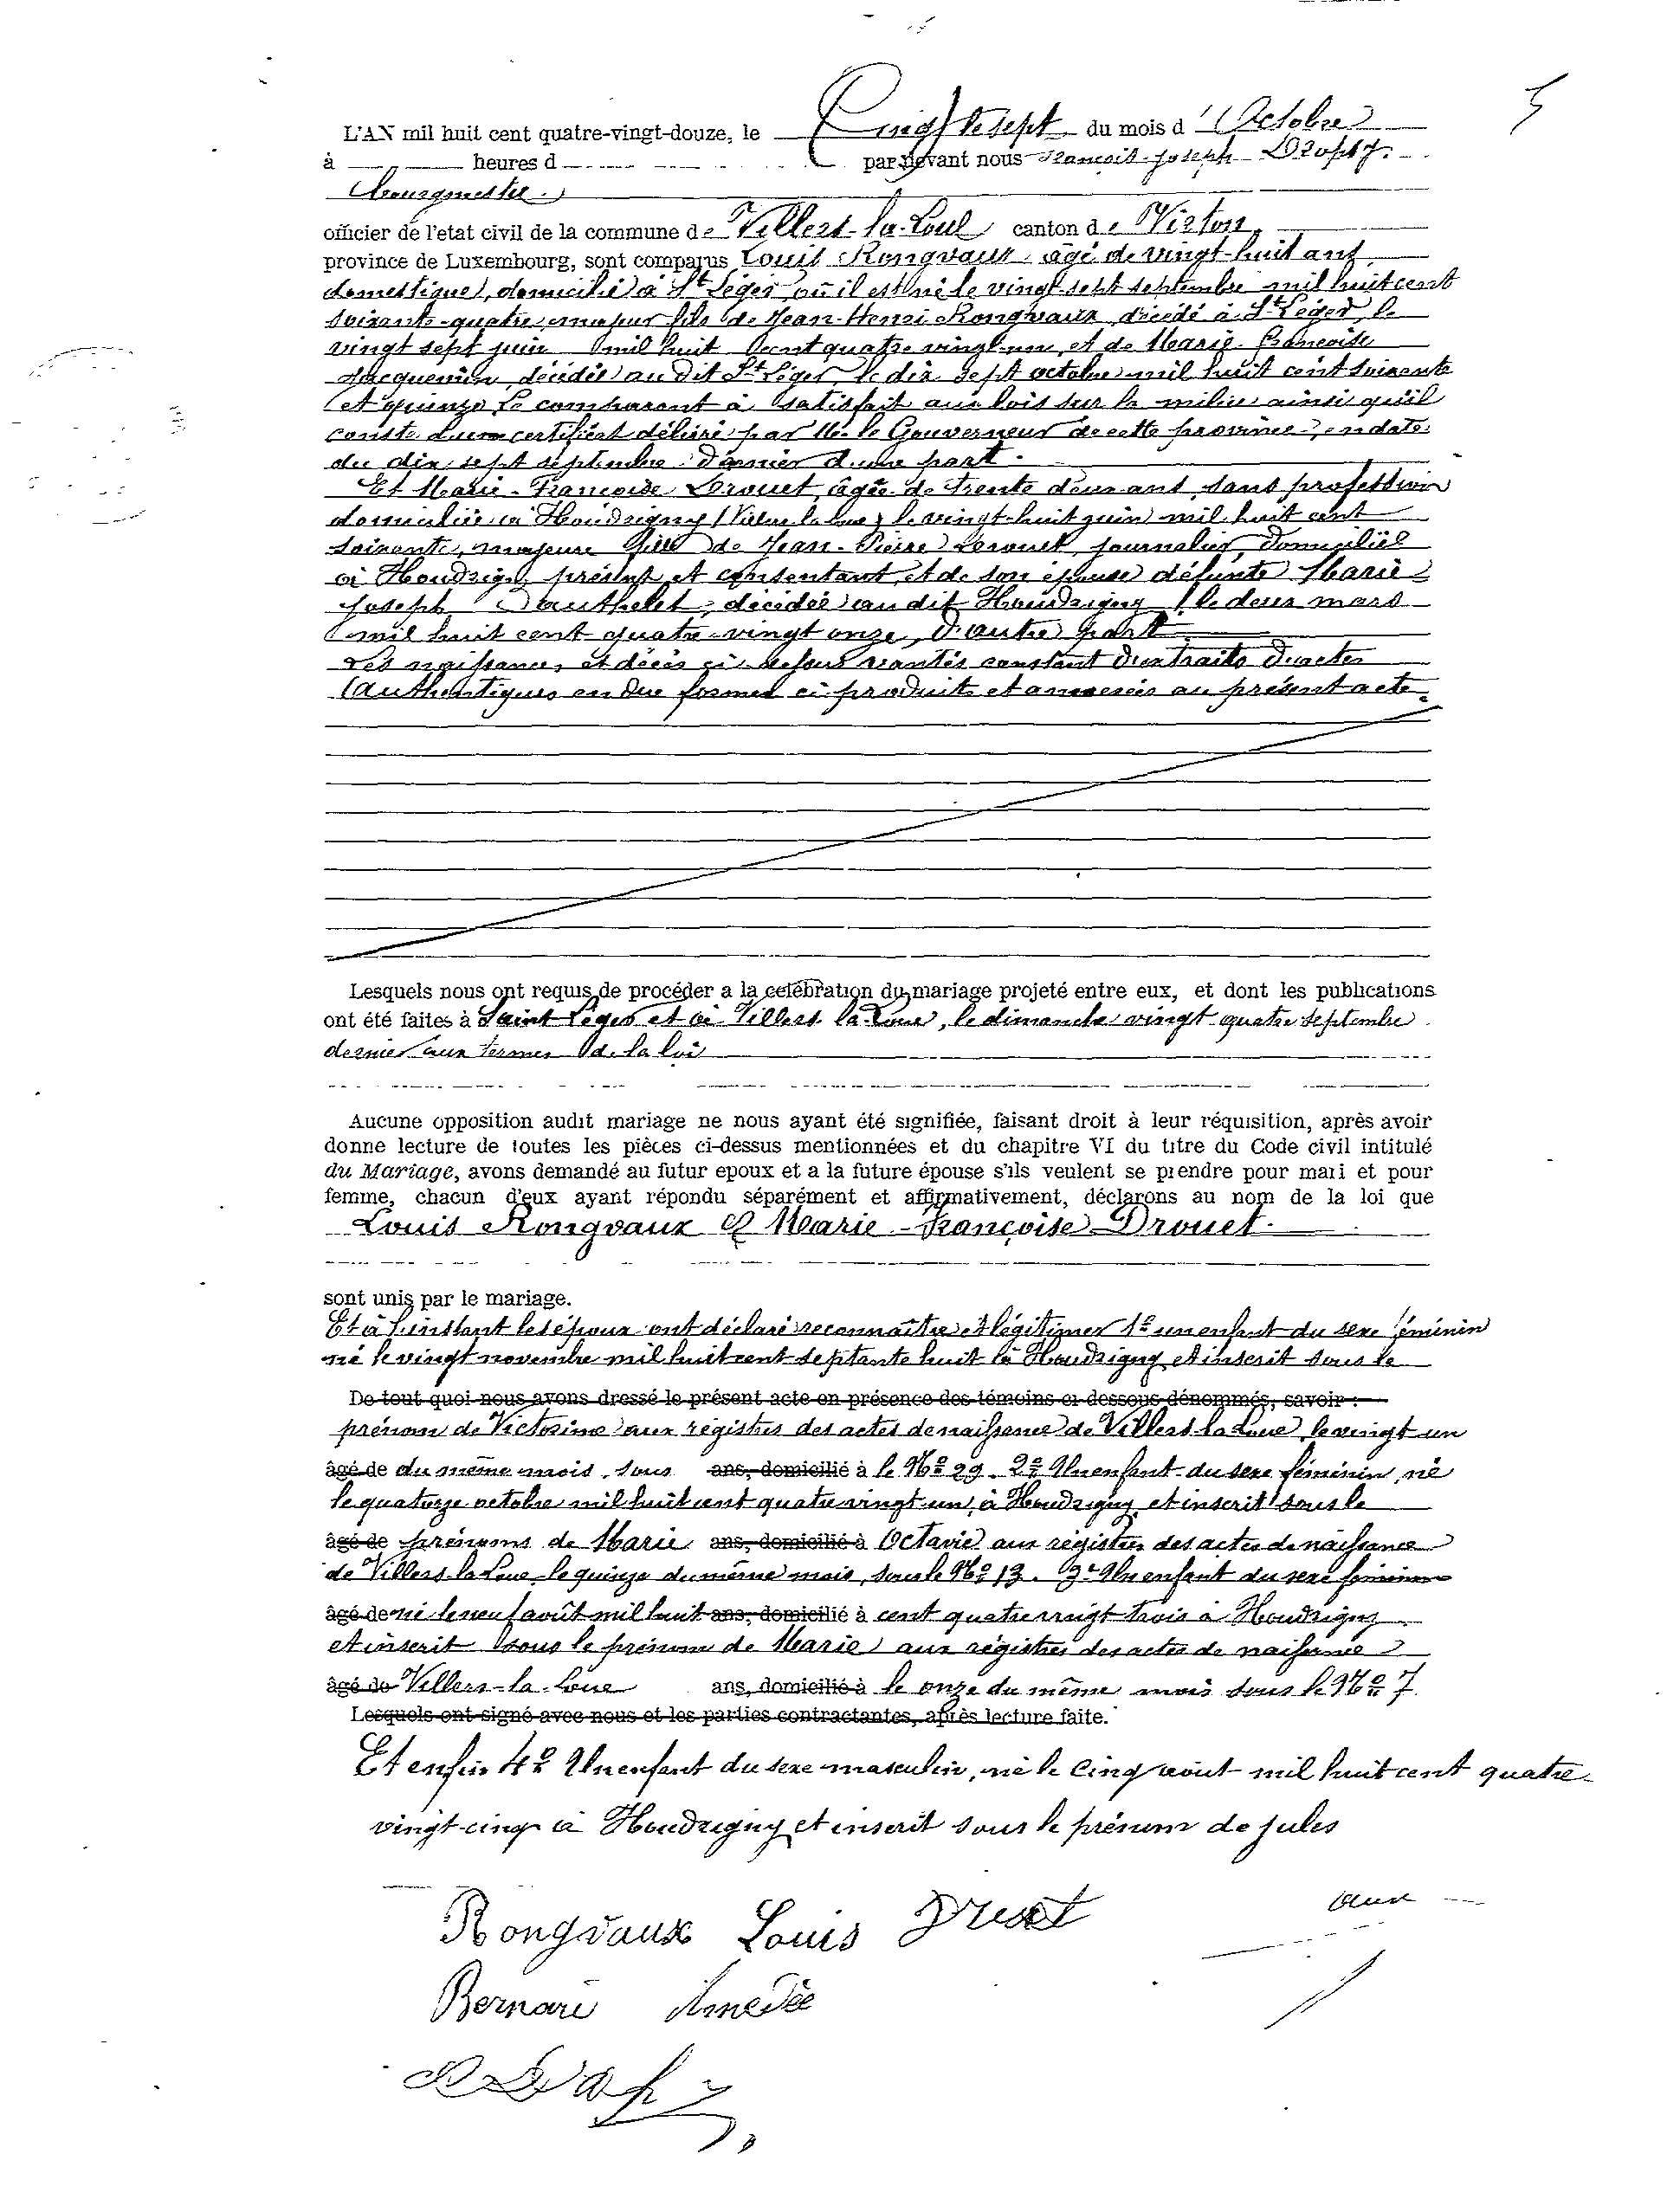 5
L'AN mil huit cent quatre-vingt-douze, le Vingt-sept du mois d'Octobre
à heures d par devant nous François-Joseph
Bourgmestre
officier de l'etat civil de la commune de Villers-la-Loue canton de Virton,
province de Luxembourg, sont comparus Louis Rongvaux, âgé de vingt-huit ans
domestique, domicilié à St Léger où il est né le vingt-sept septembre mil huit cent
soixante-quatre, majeur fils de Jean-Henri Rongvaux, décédé à St Léger, le
vingt sept juin mil huit cent quatre vingt-un, et de Marie-Françoise
Jacquemin, décédée au dit St Léger, le dix sept octobre mil huit cent soixante
et quinze Le comparant à satisfait aux lois sur la milice ainsi qu'il
conste d'un certificat délivré par M. le Gouverneur de cette province, en date
du dix sept septembre dernier d'une part.
Et Marie-Françoise Drouet, âgée de trente deux ans, sans profession
domiciliée à Houdrigny (Villers la Loue) le vingt-huit juin mil huit cent
soixante, majeure fille de Jean-Pierre Drouet, journalier, domicilié
à Houdrigny présent et consentant et de son épouse défunte Marie
Joseph décédée au dit Houdrigny le deux mars
mil huit cent quatre-vingt onze, d'autre part
Les naissances et décès ci-dessus constent d'extraits d'actes
authentiques en due forme ci produits et annexés au présent acte.
Lesquels nous ont requis de procéder a la celébration du mariage projeté entre eux, et dont les publications
ont été faites à Saint Léger et à Villers la Loue, le dimanche vingt-quatre septembre
dernier aux termes de la loi
Aucune opposition audit mariage ne nous ayant été signifiée, faisant droit à leur réquisition, après avoir
donne lecture de toutes les pièces ci-dessus mentionnées et du chapitre VI du titre du Code civil intitulé
du Mariage, avons demandé au futur epoux et a la future épouse s'ils veulent se prendre pour mari et pour
femme, chacun d'eux ayant répondu séparément et affirmativement, déclarons au nom de la loi que
Louis Rongvaux & Marie-Françoise Drouet.
sont unis par le mariage.
Et à l'instant les époux ont déclaré reconnaître et légitimer 1o un enfant du sexe féminin
né le vingt novembre mil huit cent septante huit à Houdrigny et inscrit sous le
De tout quoi nous avons dressé le présent acte en présence des témoins ci-dessous dénommés, savoir :
prénom de Victorine aux régistres des actes de naissance de Villers la Loue, le vingt un
âgé de du même mois, sous ans, domicilié à le No 29. 2o Un enfant du sexe féminin, né
le quatorze octobre mil huit cent quatre vingt un, à Houdrigny et inscrit sous le
âgé de prénoms de Marie ans, domicilié à Octavie aux régistres des actes de naissance
de Villers la Loue le quinze du même mois, sous le No 13. 3o Un enfant du sexe féminin
âgé de né le neuf août mil huit ans, domicilié à cent quatre vingt trois à Houdrigny
et inscrit sous le prénom de Marie aux régistres des actes de naissance
âgé de Villers-la-Loue ans, domicilié à le onze du même mois sous le No 7.
Lesquels ont signé avec nous et les parties contractantes, après lecture faite.
Et enfin 4o Un enfant du sexe masculin, né le cinq août mil huit cent quatre-
vingt-cinq à Houdrigny et inscrit sous le prénom de Jules
aux
Rongvaux Louis Drouet
Bernard Amedée